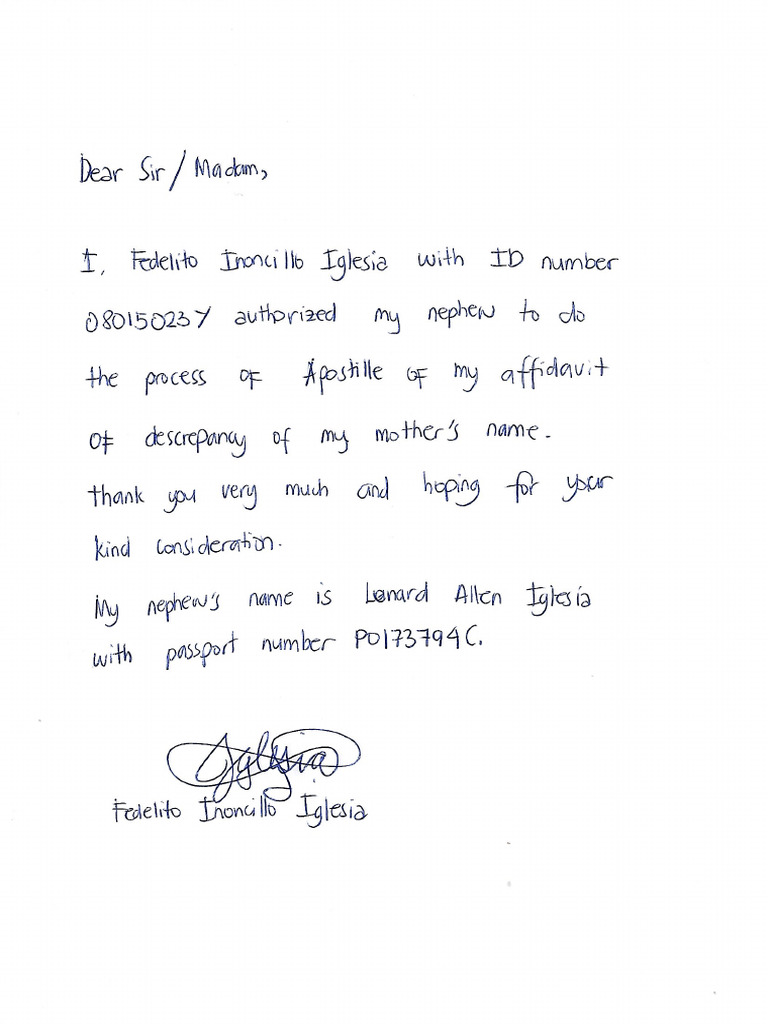 Dear Sir / Madam,
I, Fedelito Inoncillo Iglesia with ID number
08015023Y authorized my nephew to do
the process of Apostille of my affidavit
of descrepancy of my mother's name.
thank you very much and hoping for your
kind consideration.
My nephew's name is Lenard Allen Iglesia
with passport number P0173794C.
Iglesia
Fedelito Inoncillo Iglesia